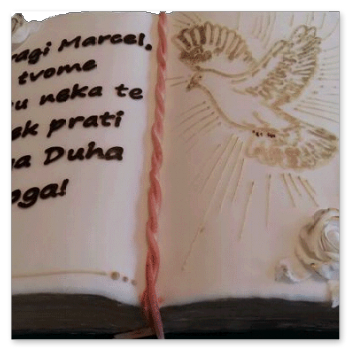 ragi Marcel,
tvome
u neka te
ek prati
a Duha
oga!